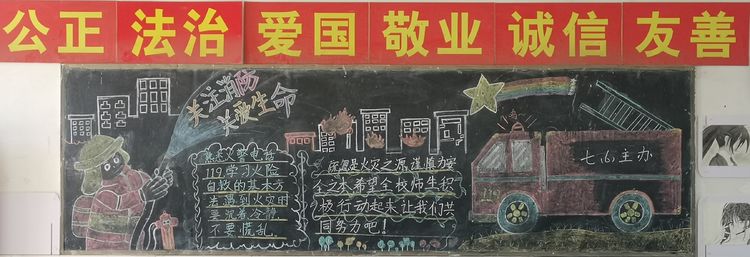 公正 法治 爱国 敬业 诚信 友善
关注消防
关爱生命
熟悉火警电话
119学习火险
自救的基本方
法遇到火灾时
要沉着冷静
不要慌乱
疏忽是火灾之源谨慎乃安
全之本希望全校师生积
极行动起来让我们共
同努力吧！
119
七（6）主办